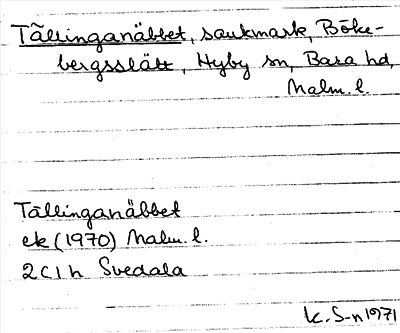 Tällinganäbbet, sankmark, Böke-
bergsslätt, Hyby sn, Bara hd,
Malm. l.
Tällinganäbbet
ek (1970) Malm. l.
2 C 1 h Svedala
K. S-n 1971